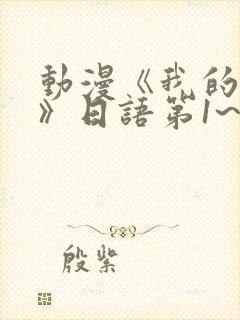 動漫《我的
》日語第1~
殷紫